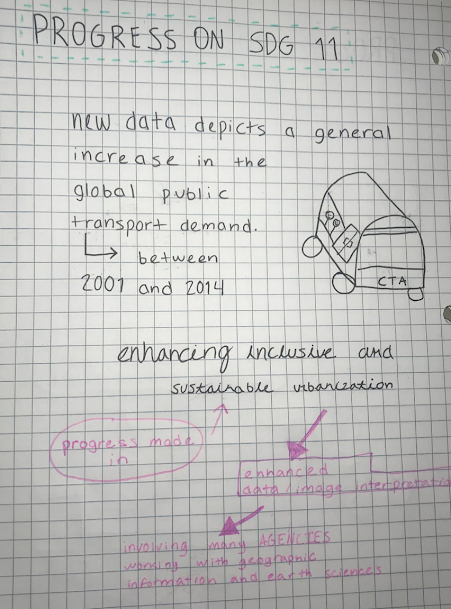 PROGRESS ON SDG 11
new data depicts a general
increase in the
global public
transport demand.
between
2001 and 2014
CTA
enhancing inclusive and
sustainable urbanization
progress made
in
enhanced
data/image interpretatio
involving many AGENCIES
working with geographic
information and earth sciences